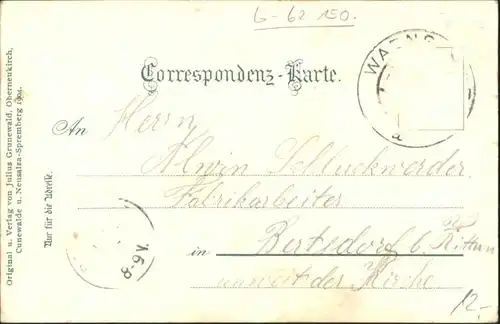 6-62 150.
Correspondenz-Karte.
WARNS
a
An Herrn
Alwin Schluckwerder
Fabrikarbeiter
in Bertsdorf b. Zittau
unweit der Kirche
8-9V.
12,-
Nur für die Adresse.
Original u. Verlag von Julius Grunewald, Oberneukirch,
Cunewalde u. Neusalza-Spremberg 1904.